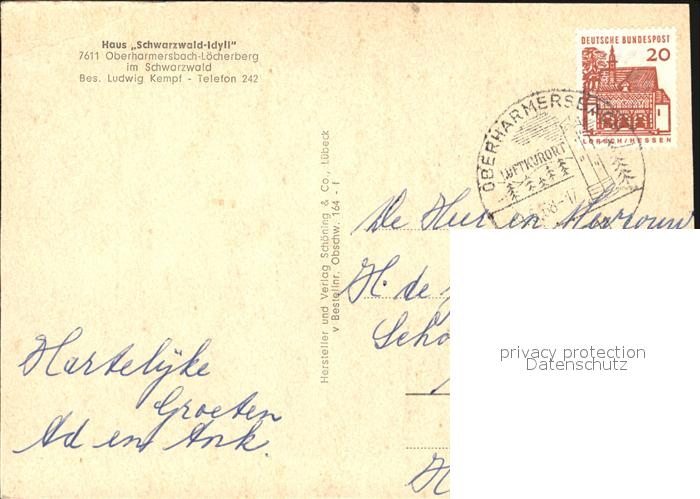 Haus „Schwarzwald-Idyll"
7611 Oberharmersbach-Löcherberg
im Schwarzwald
Bes. Ludwig Kempf - Telefon 242
DEUTSCHE BUNDESPOST
20
LORSCH/HESSEN
LUFTKURORT
Hersteller und Verlag Schöning & Co., Lübeck
v Bestellnr. Obschw. 164 - I
De Heer en Mevrouw
H. de
Scho
Hartelijke
Groeten
Ad en Ank.
H
privacy protection
Datenschutz